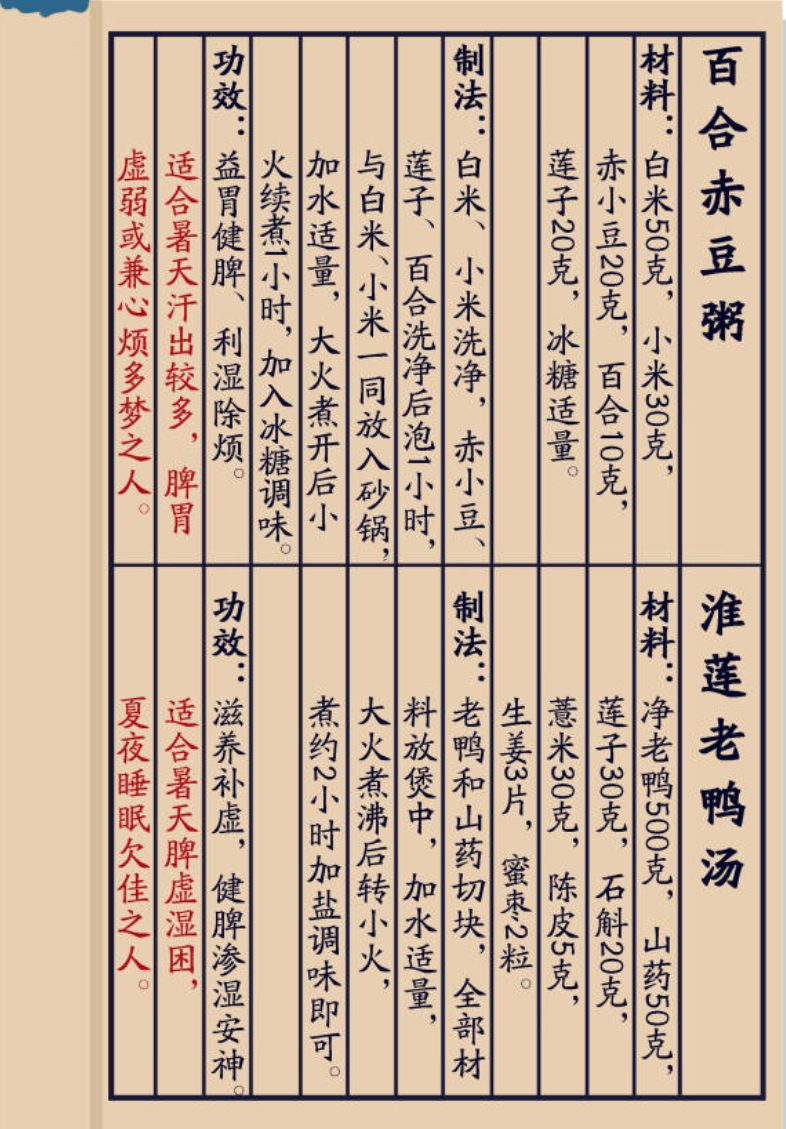 百合赤豆粥
材料：白米50克，小米30克，
赤小豆20克，百合10克，
莲子20克，冰糖适量。
制法：白米、小米洗净，赤小豆、
莲子、百合洗净后泡1小时，
与白米、小米一同放入砂锅，
加水适量，大火煮开后小
火续煮1小时，加入冰糖调味。
功效：益胃健脾、利湿除烦。
适合暑天汗出较多，脾胃
虚弱或兼心烦多梦之人。
淮莲老鸭汤
材料：净老鸭500克，山药50克，
莲子30克，石斛20克，
薏米30克，陈皮5克，
生姜3片，蜜枣2粒。
制法：老鸭和山药切块，全部材
料放煲中，加水适量，
大火煮沸后转小火，
煮约2小时加盐调味即可。
功效：滋养补虚，健脾渗湿安神。
适合暑天脾虚湿困，
夏夜睡眠欠佳之人。